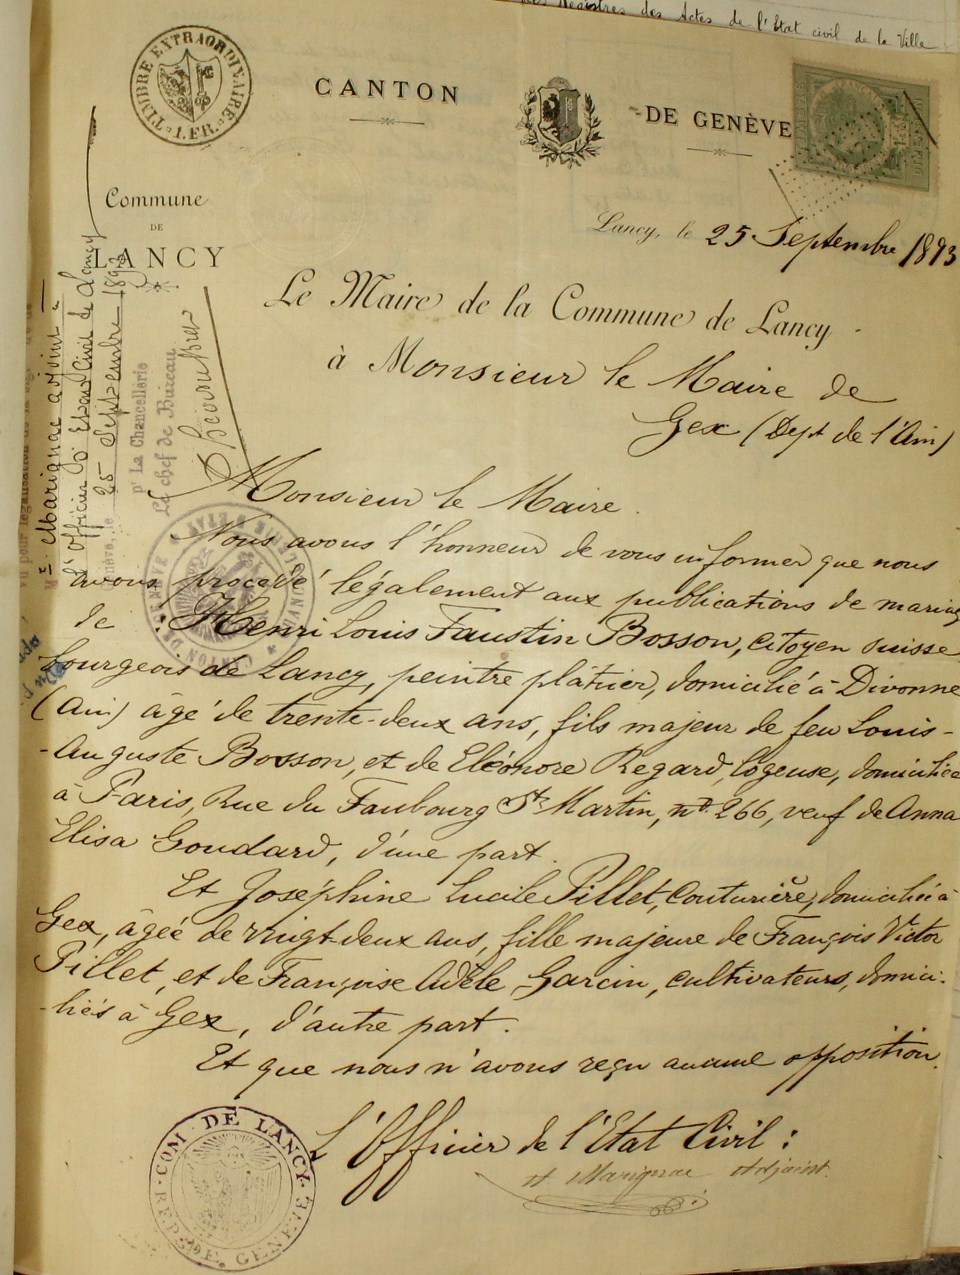 Registres des Actes de l'Etat civil de la Ville
TIMBRE EXTRAORDINAIRE
1. FR.
CANTON DE GENÈVE
Commune
DE
LANCY
Lancy, le 25 Septembre 1893
Le Maire de la Commune de Lancy
à Monsieur le Maire de
Gex (Dept de l'Ain)
Vu pour légalisation
Mr. Marignac adjoint
l'Officier d'Etat Civil de Lancy
Genève, le 25 Septembre 1893
pr La Chancellerie
Le chef de Bureau
CANTON DE GENEVE
Monsieur le Maire.
Nous avons l'honneur de vous informer que nous
avons procédé légalement aux publications de mariage
de : Henri Louis Faustin Bosson, citoyen suisse
bourgeois de Lancy, peintre plâtrier, domicilié à Divonne
(Ain) âgé de trente-deux ans, fils majeur de feu Louis-
-Auguste Bosson, et de Eléonore Regard, logeuse, domiciliée
à Paris, Rue du Faubourg St Martin, no 266, veuf de Anna
Elisa Goudard, d'une part.
Et Joséphine Lucile Pillet, couturière, domiciliée à
Gex, âgée de vingt-deux ans, fille majeure de François Victor
Pillet, et de Françoise Adèle Garcin, cultivateurs, domici-
-liés à Gex, d'autre part.
Et que nous n'avons reçu aucune opposition.
L'Officier de l'Etat Civil :
Marignac Adjoint.
COM. DE LANCY.
REP. DE GENEVE